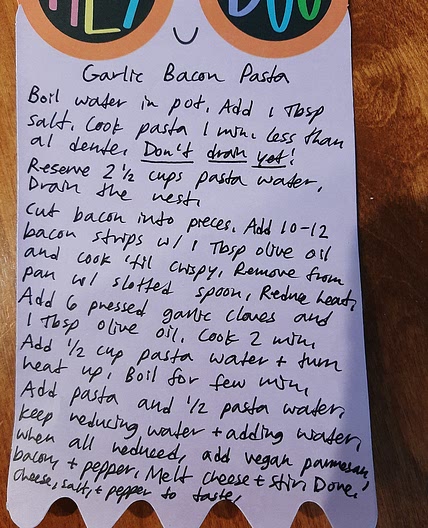 HEY BOO
Garlic Bacon Pasta
Boil water in pot. Add 1 Tbsp
salt. Cook pasta 1 min. less than
al dente. Don't drain yet!
Reserve 2 1/2 cups pasta water.
Drain the rest.
Cut bacon into pieces. Add 10-12
bacon strips w/ 1 Tbsp olive oil
and cook 'til crispy. Remove from
pan w/ slotted spoon. Reduce heat.
Add 6 pressed garlic cloves and
1 Tbsp olive oil. Cook 2 min.
Add 1/2 cup pasta water + turn
heat up. Boil for few min.
Add pasta and 1/2 pasta water.
Keep reducing water + adding water.
when all reduced, add vegan parmesan,
bacon, + pepper. Melt cheese + stir. Done.
Cheese, salt, + pepper to taste.